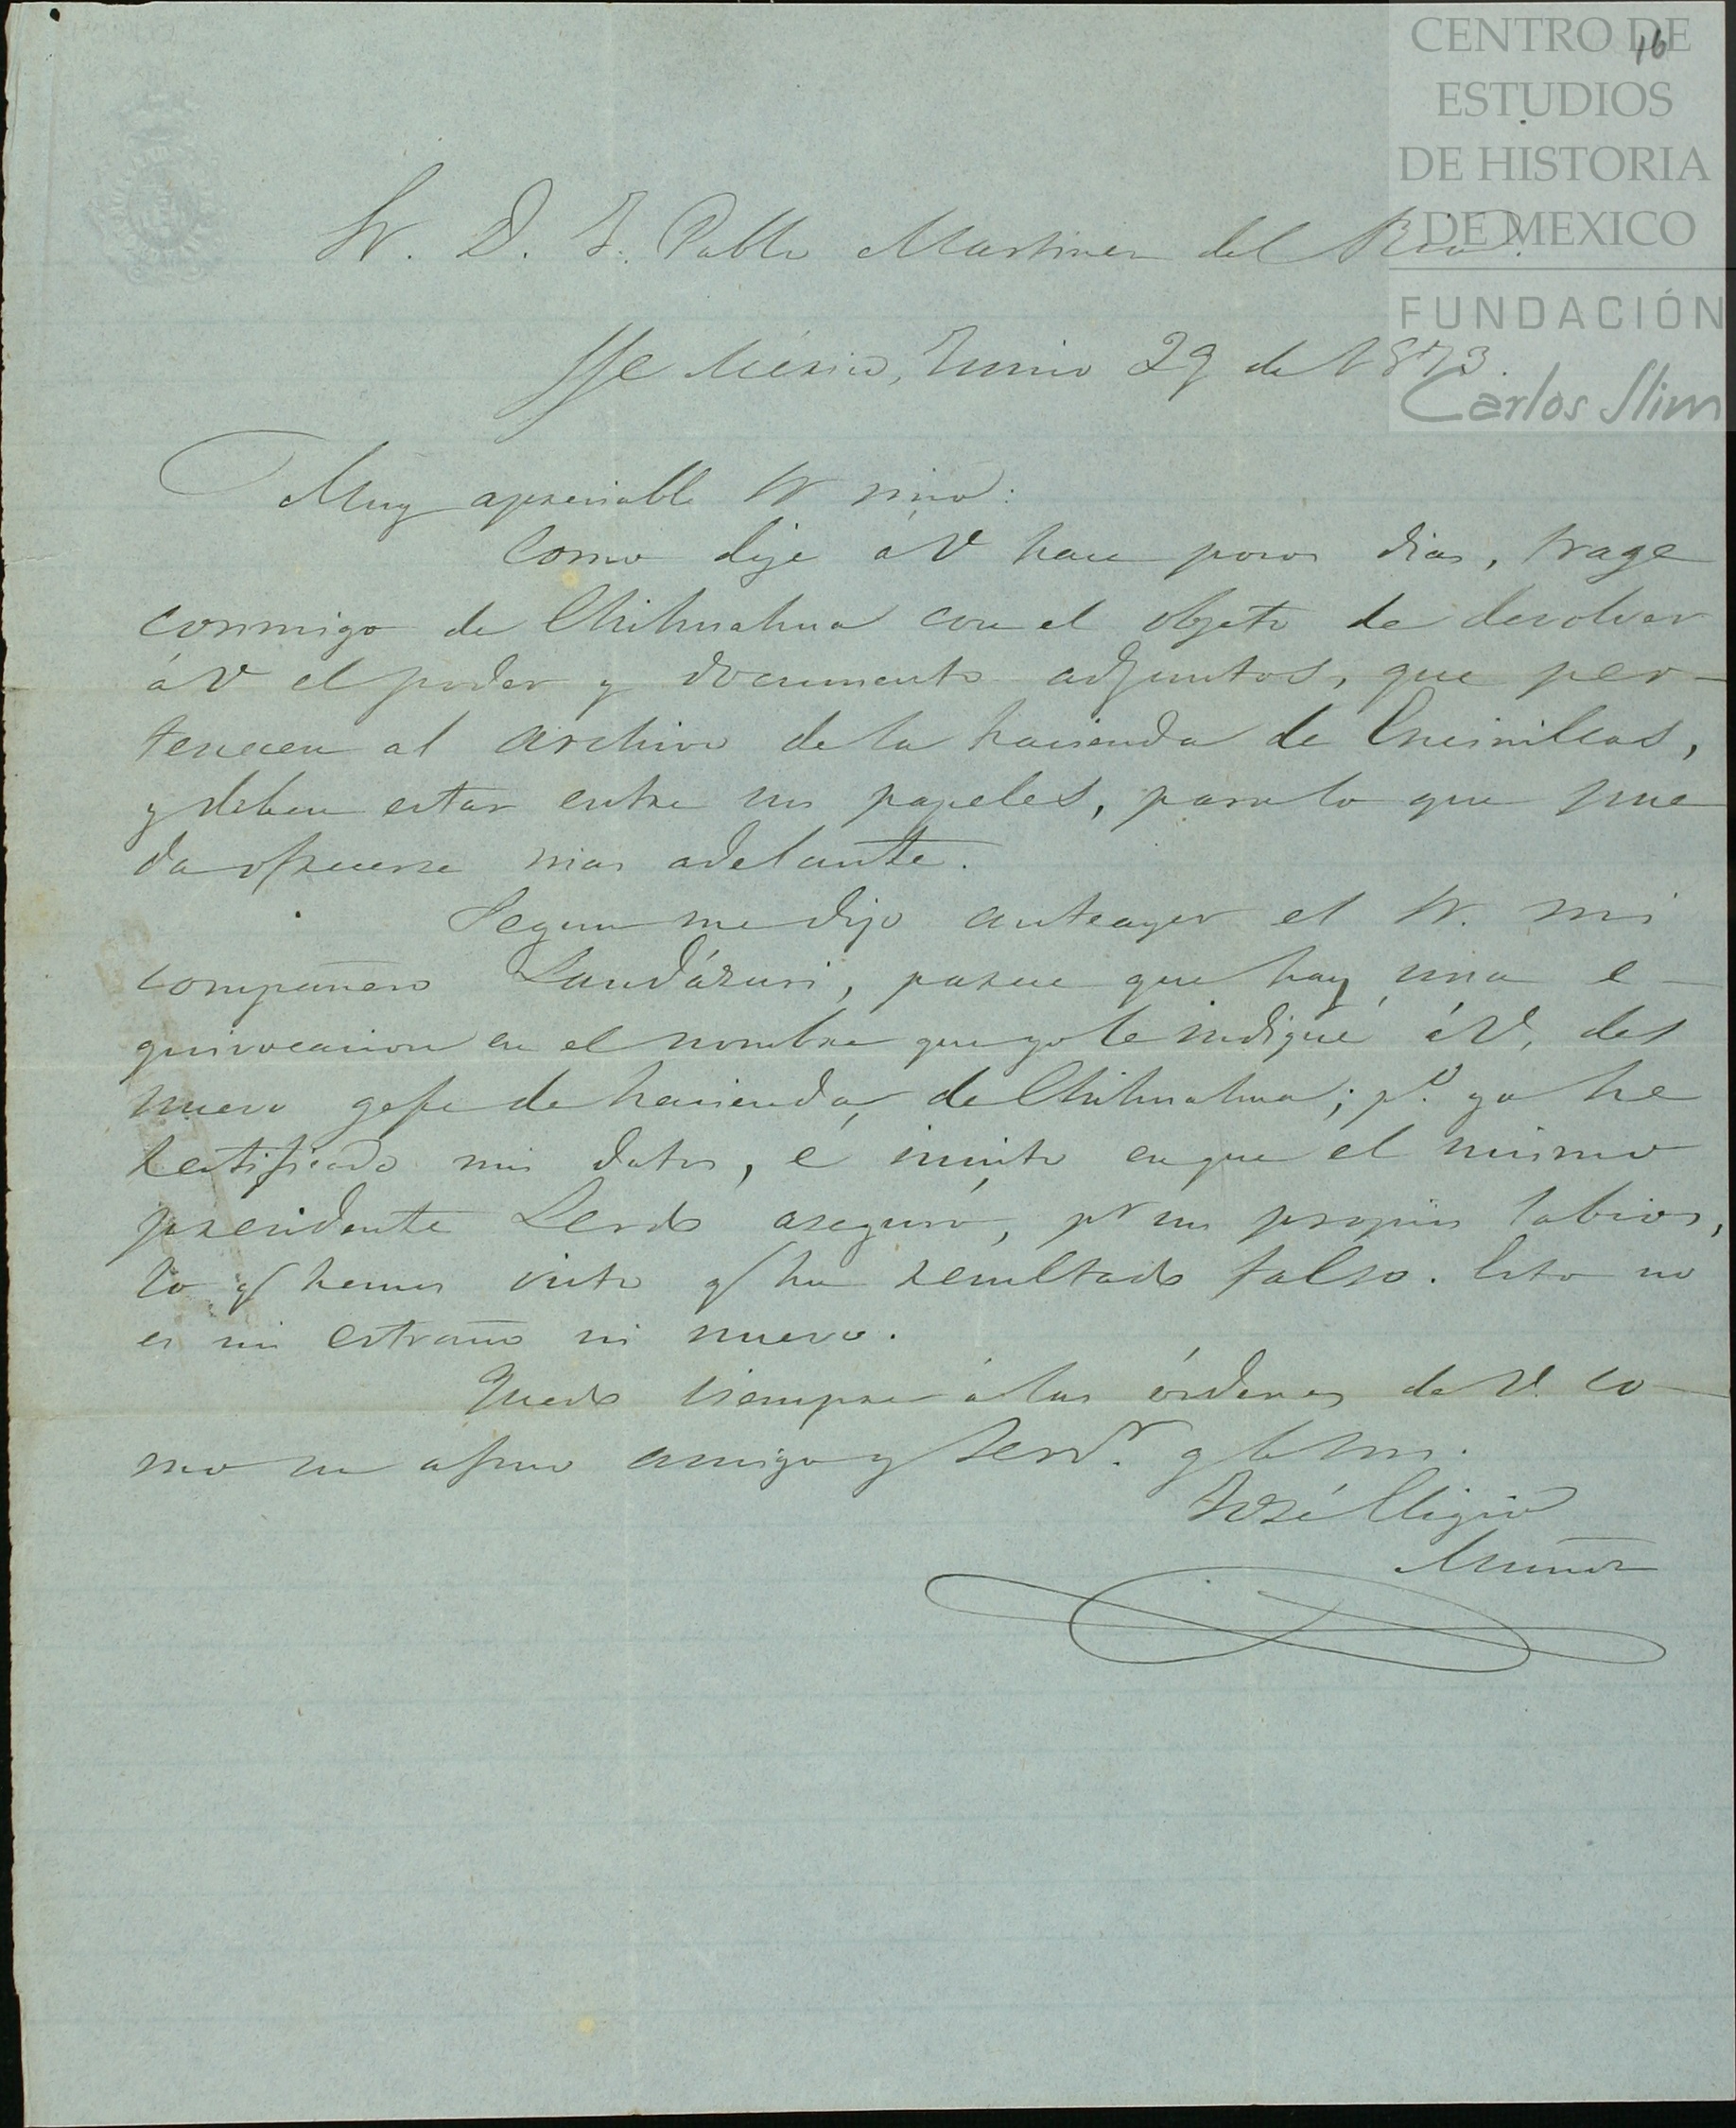 CENTRO DE
ESTUDIOS
DE HISTORIA
DE MEXICO
FUNDACIÓN
Carlos Slim
16
Sr. D. J. Pablo Martinez del Rio.
S/c México, Junio 29 de 1873.
Muy apreciable Sr mio:
Como dije á V hace pocos dias, trage
conmigo de Chihuahua con el objeto de devolver
á V el poder y documento adjuntos, que per-
tenecen al archivo de la hacienda de Encinillas,
y deben estar entre sus papeles, para lo que pue
da ofrecerse mas adelante.
Segun me dijo anteayer el Sr. mi
compañero Landázuri, parece que hay una e-
quivocacion en el nombre que yo le indiqué á V, del
nuevo gefe de hacienda de Chihuahua; p.º ya he
rectificado mis datos, é insisto en que el mismo
presidente Lerdo aseguró, pr sus propios labios,
lo q hemos visto q ha resultado falso. Esto no
es ni estraño ni nuevo.
Quedo siempre á las órdenes de V. co-
mo su afmo amigo y serv.r q b s m.
José Eligio
Muñoz